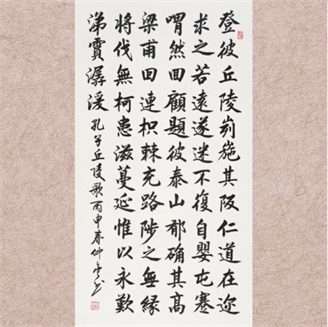 登彼丘陵峛施其阪仁道在迩
求之若遠遂迷不復自嬰屯蹇
喟然回顧題彼泰山郁確其高
梁甫回連枳棘充路陟之無緣
將伐無柯患滋蔓延惟以永歎
涕霣潺湲 孔子丘陵歌丙申春仲